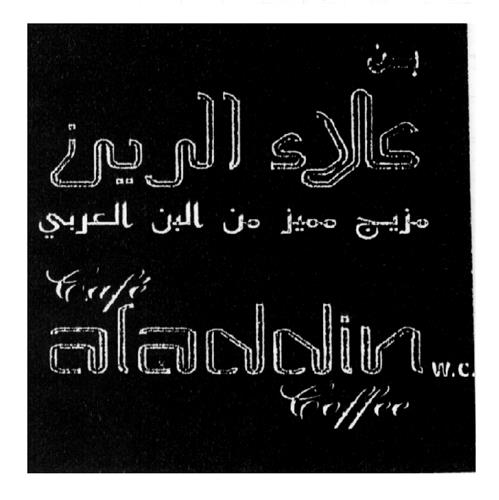 بـن
علاء الدين
مزيج مميز من البن العربي
Café
aladdin w.c.
Coffee